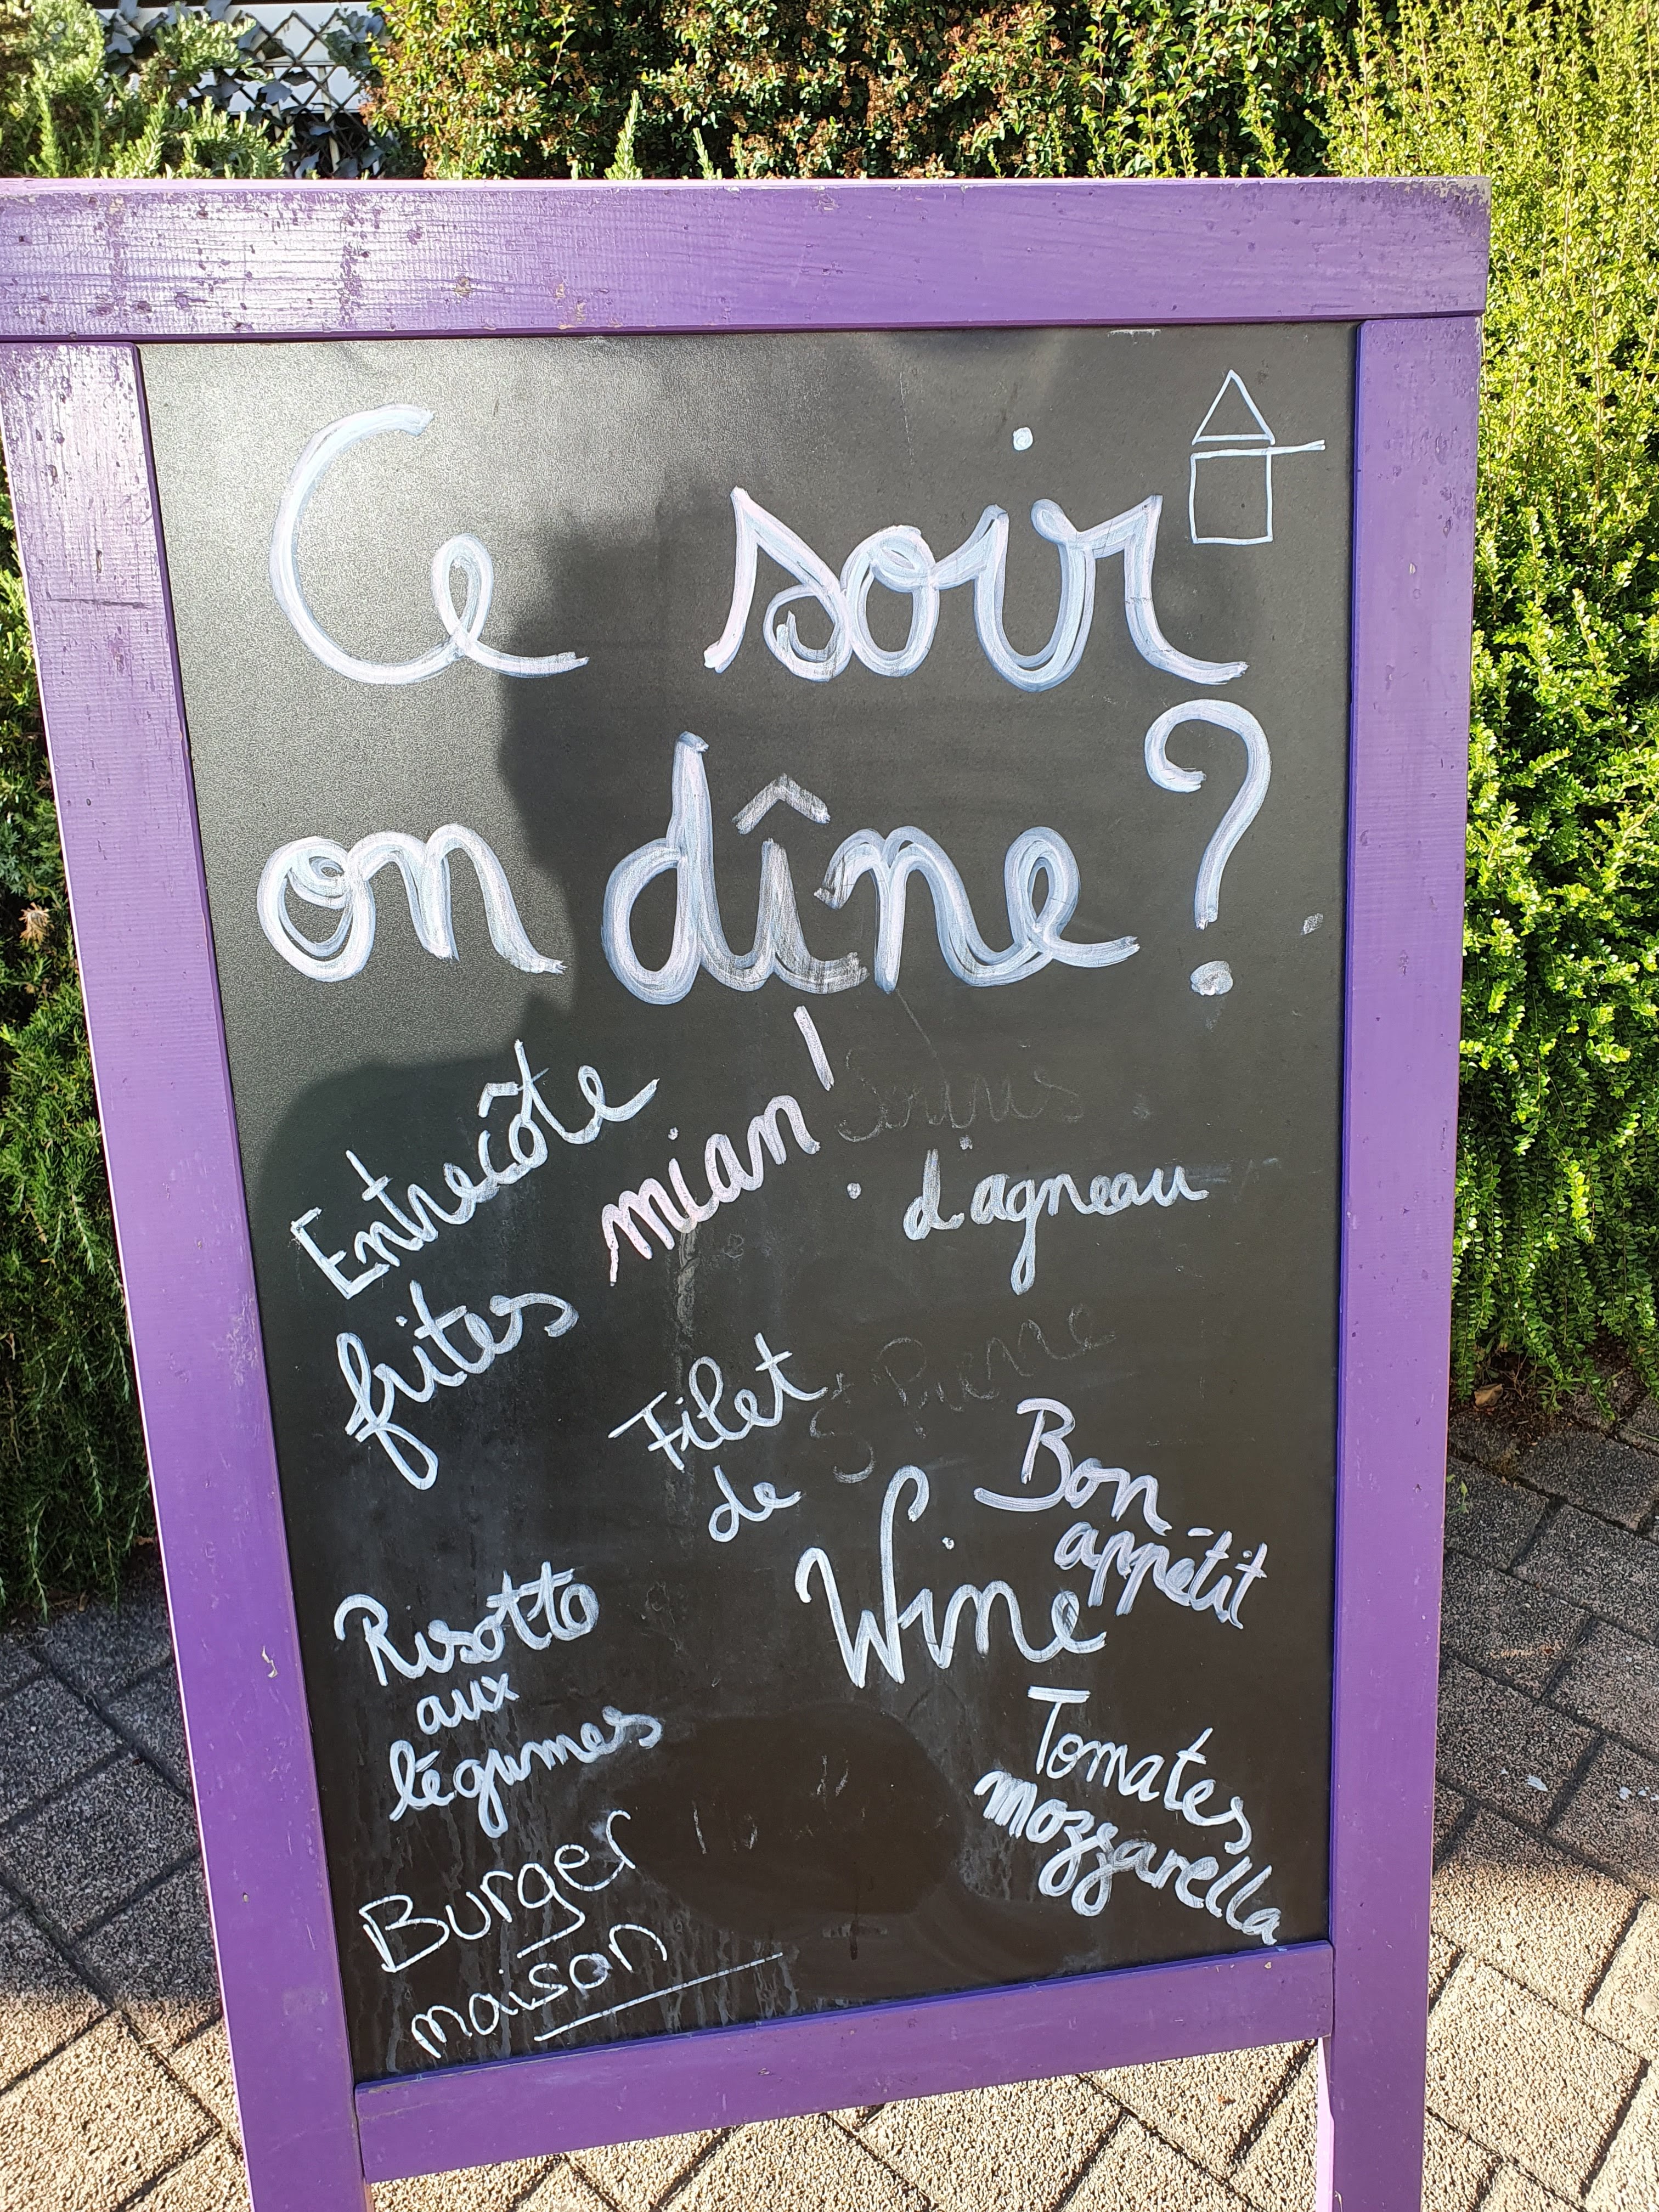 Ce soir
on dîne ?
Entrecôte
frites
miam !
Souris
d'agneau
Filet
de
St Pierre
Bon
appétit
Wine
Risotto
aux
légumes
Tomates
mozzarella
Burger
maison